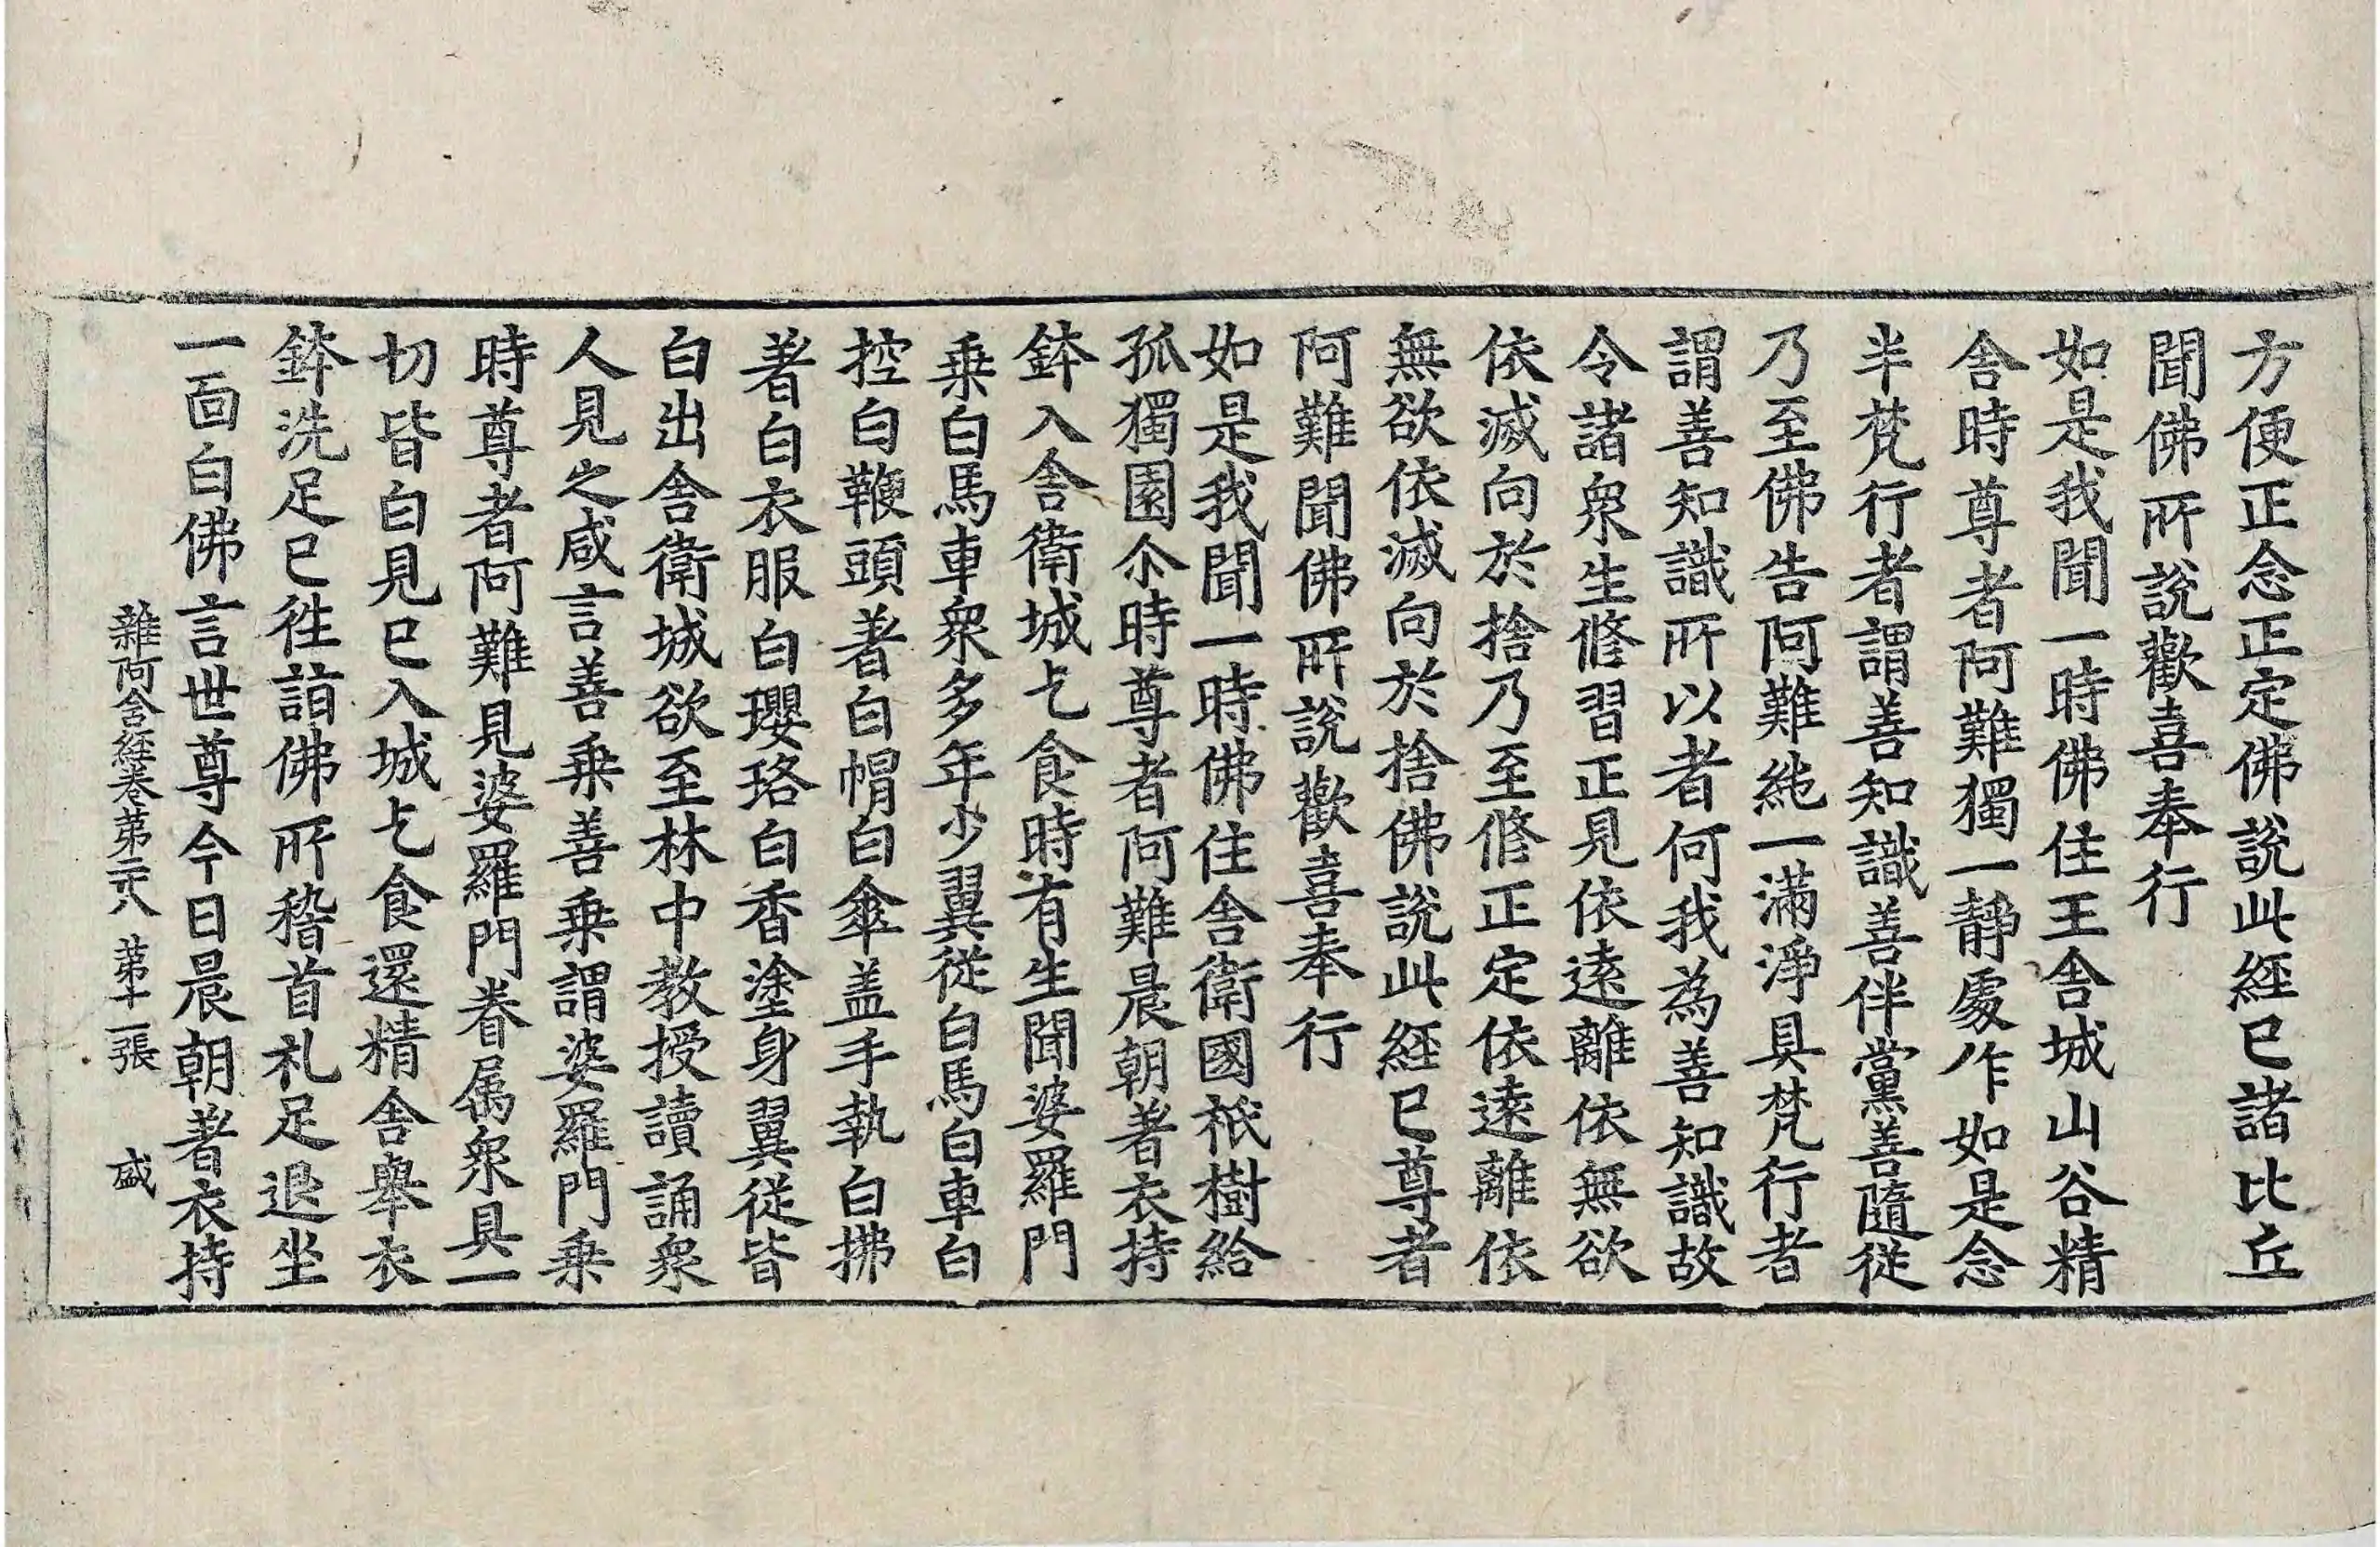 方便正念正定佛說此経已諸比丘
聞佛所說歡喜奉行
如是我聞一時佛住王舍城山谷精
舍時尊者阿難獨一靜處作如是念
半梵行者謂善知識善伴黨善隨従
乃至佛告阿難純一滿淨具梵行者
謂善知識所以者何我為善知識故
令諸衆生修習正見依遠離依無欲
依滅向於捨乃至修正定依遠離依
無欲依滅向於捨佛說此経已尊者
阿難聞佛所說歡喜奉行
如是我聞一時佛住舍衛國祇樹給
孤獨園尒時尊者阿難晨朝著衣持
鉢入舍衛城乞食時有生聞婆羅門
乗白馬車衆多年少翼従白馬白車白
控白鞭頭著白帽白傘盖手執白拂
著白衣服白瓔珞白香塗身翼従皆
白出舍衛城欲至林中教授讀誦衆
人見之咸言善乗善乗謂婆羅門乗
時尊者阿難見婆羅門眷属衆具一
切皆白見已入城乞食還精舍舉衣
鉢洗足已徃詣佛所稽首礼足退坐
一面白佛言世尊今日晨朝著衣持
雜阿含経卷第二十八 第十一張 盛